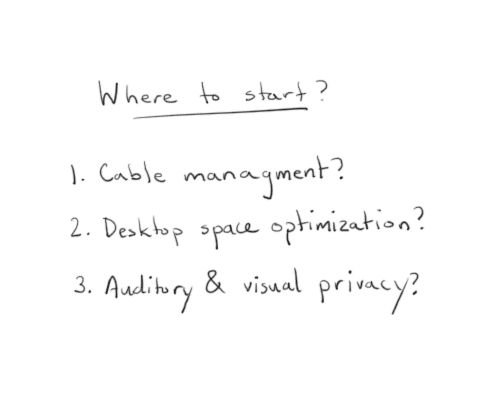 Where to start?
1. Cable managment?
2. Desktop space optimization?
3. Auditory & visual privacy?